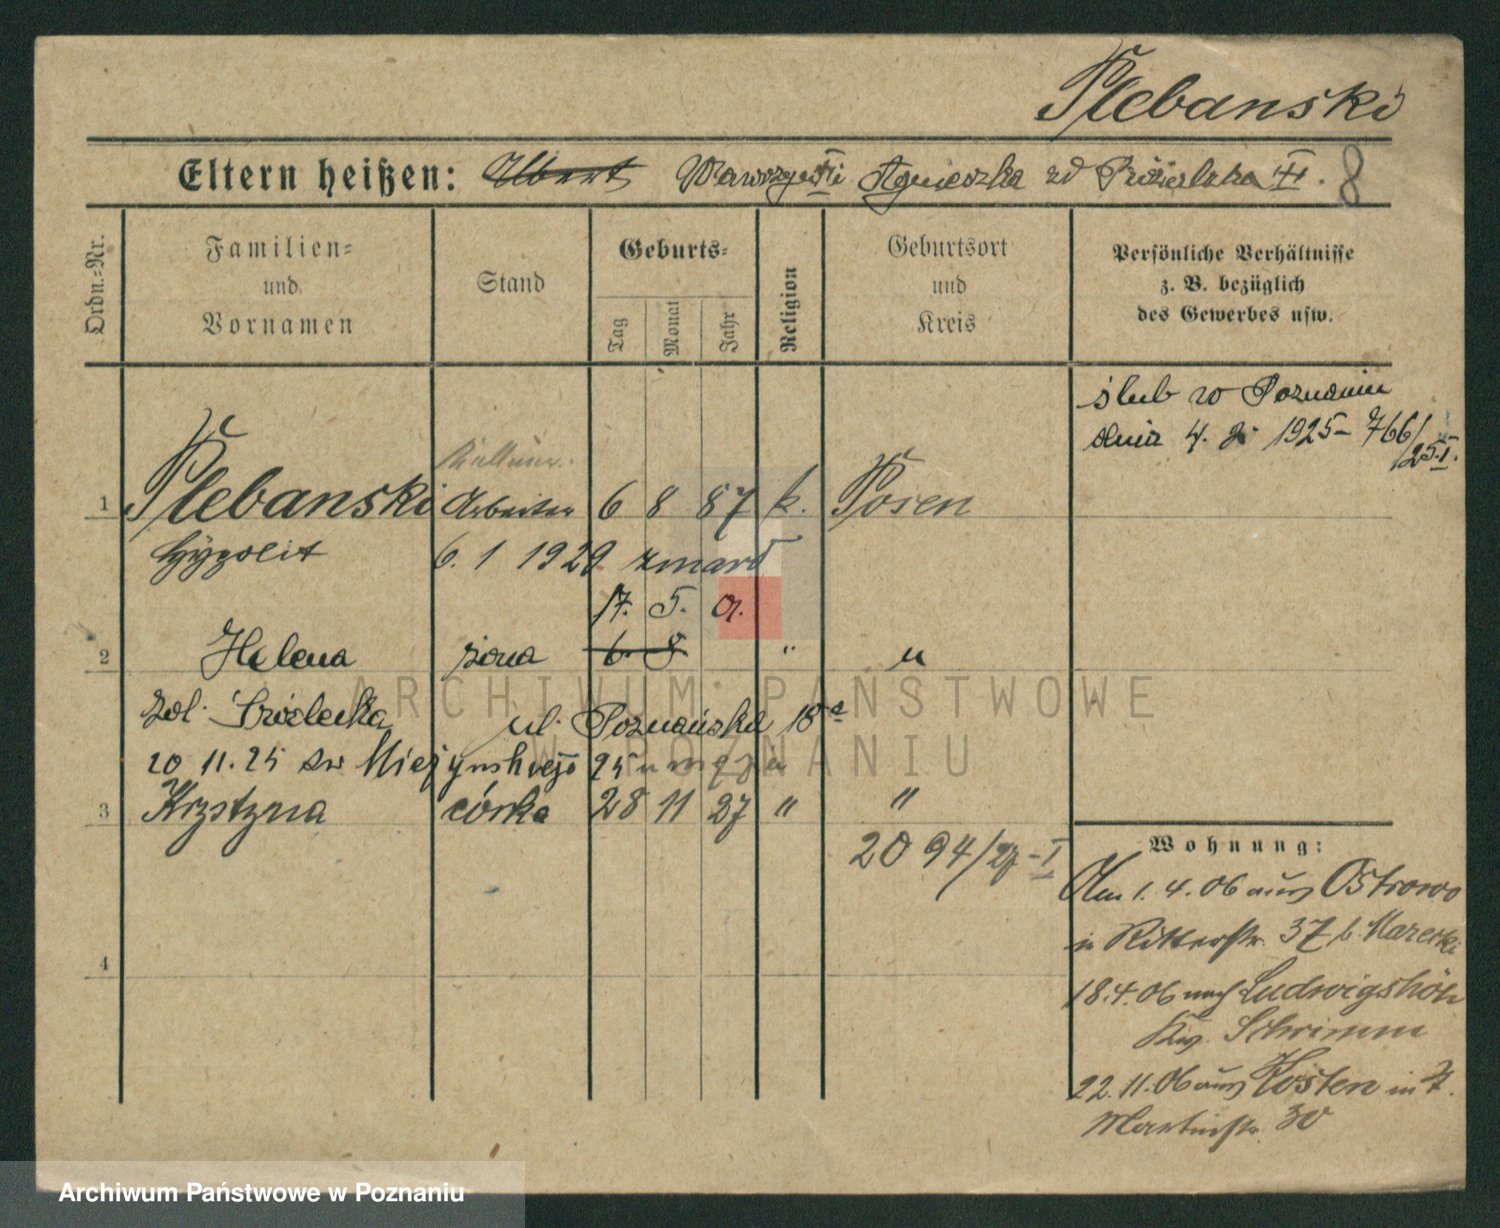 Plebanski
Eltern heißen: Albert Wawrzyn Agnieszka zd 8
Ordn.-Nr.
Familien-
und
Vornamen
Stand
Geburts-
Tag
Monat
Jahr
Religion
Geburtsort
und
Kreis
Persönliche Verhältnisse
z. B. bezüglich
des Gewerbes usw.
ślub w Poznaniu
dnia 4. 1925 - 766/25-I.
1 Plebanski Arbeiter 6 8 87 k. Posen
Hypolit 6. 1 1929 zmarł
17. 5. 01.
2 Helena żona 6. 8 " "
ul. Poznańska 18a
20 11.25
3 Krystyna córka 28 11 27 " "
2094/27-I
4
Wohnung:
Am 1.4.06 aus Ostrowo
in Ritterstr. 37 b. Marecki
18.4.06 nach Ludwigshöh
Krs. Schrimm
22.11.06 aus Kosten in
Martinstr. 30
ARCHIWUM PAŃSTWOWE
W POZNANIU
Archiwum Państwowe w Poznaniu